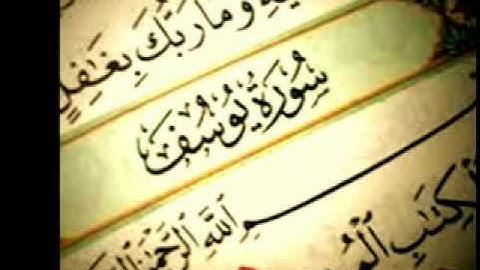 وَمَا رَبُّكَ بِغَٰفِلٍ
سُورَةُ يُوسُفَ
بِسْمِ ٱللَّهِ ٱلرَّحْمَٰنِ
ٱلْكِتَٰبِ